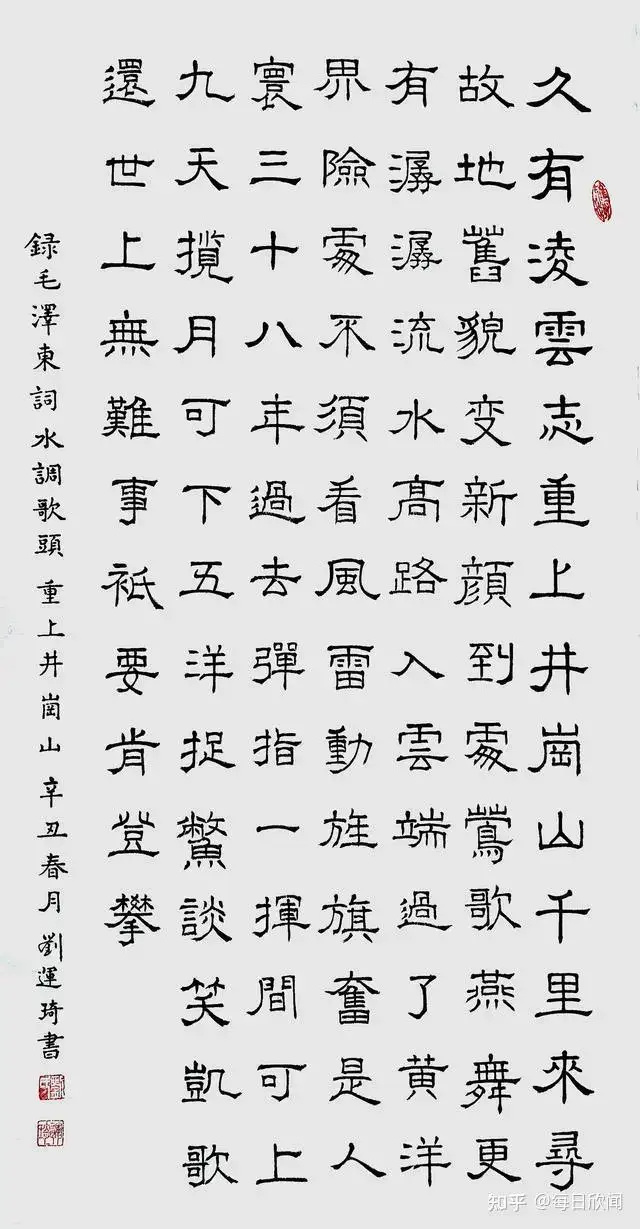 久有凌雲志重上井崗山千里來尋
故地舊貌变新顔到處鶯歌燕舞更
有潺潺流水髙路入雲端過了黄洋
界險處不須看風雷動旌旗奮是人
寰三十八年過去彈指一揮間可上
九天攬月可下五洋捉鱉談笑凱歌
還世上無難事祇要肯登攀
録毛澤東詞水調歌頭 重上井崗山 辛丑春月 劉運琦書
知乎 @每日欣闻